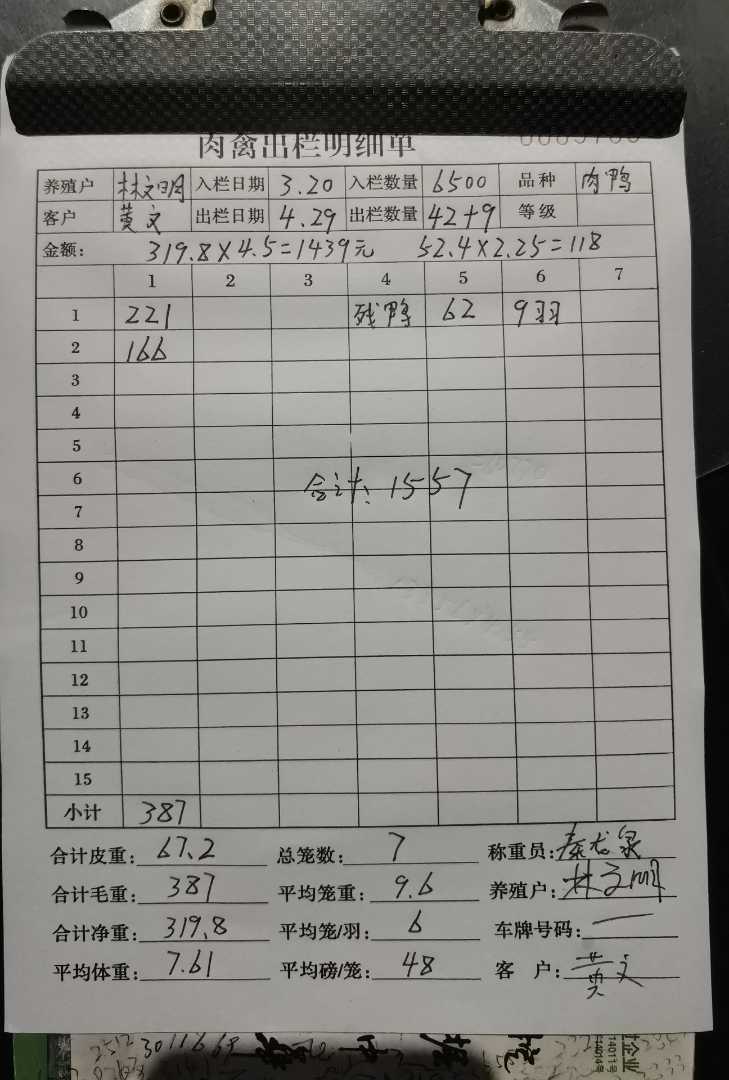 肉禽出栏明细单
养殖户 林文明 入栏日期 3.20 入栏数量 6500 品种 肉鸭
客户 黄文 出栏日期 4.29 出栏数量 42+9 等级
金额: 319.8×4.5=1439元 52.4×2.25=118
1 2 3 4 5 6 7
1 221 残鸭 62 9羽
2 166
3
4
5
6
合计: 1557
7
8
9
10
11
12
13
14
15
小计 387
合计皮重: 67.2 总笼数: 7 称重员:
合计毛重: 387 平均笼重: 9.6 养殖户: 林文明
合计净重: 319.8 平均笼/羽: 6 车牌号码: 一
平均体重: 7.61 平均磅/笼: 48 客户: 黄文